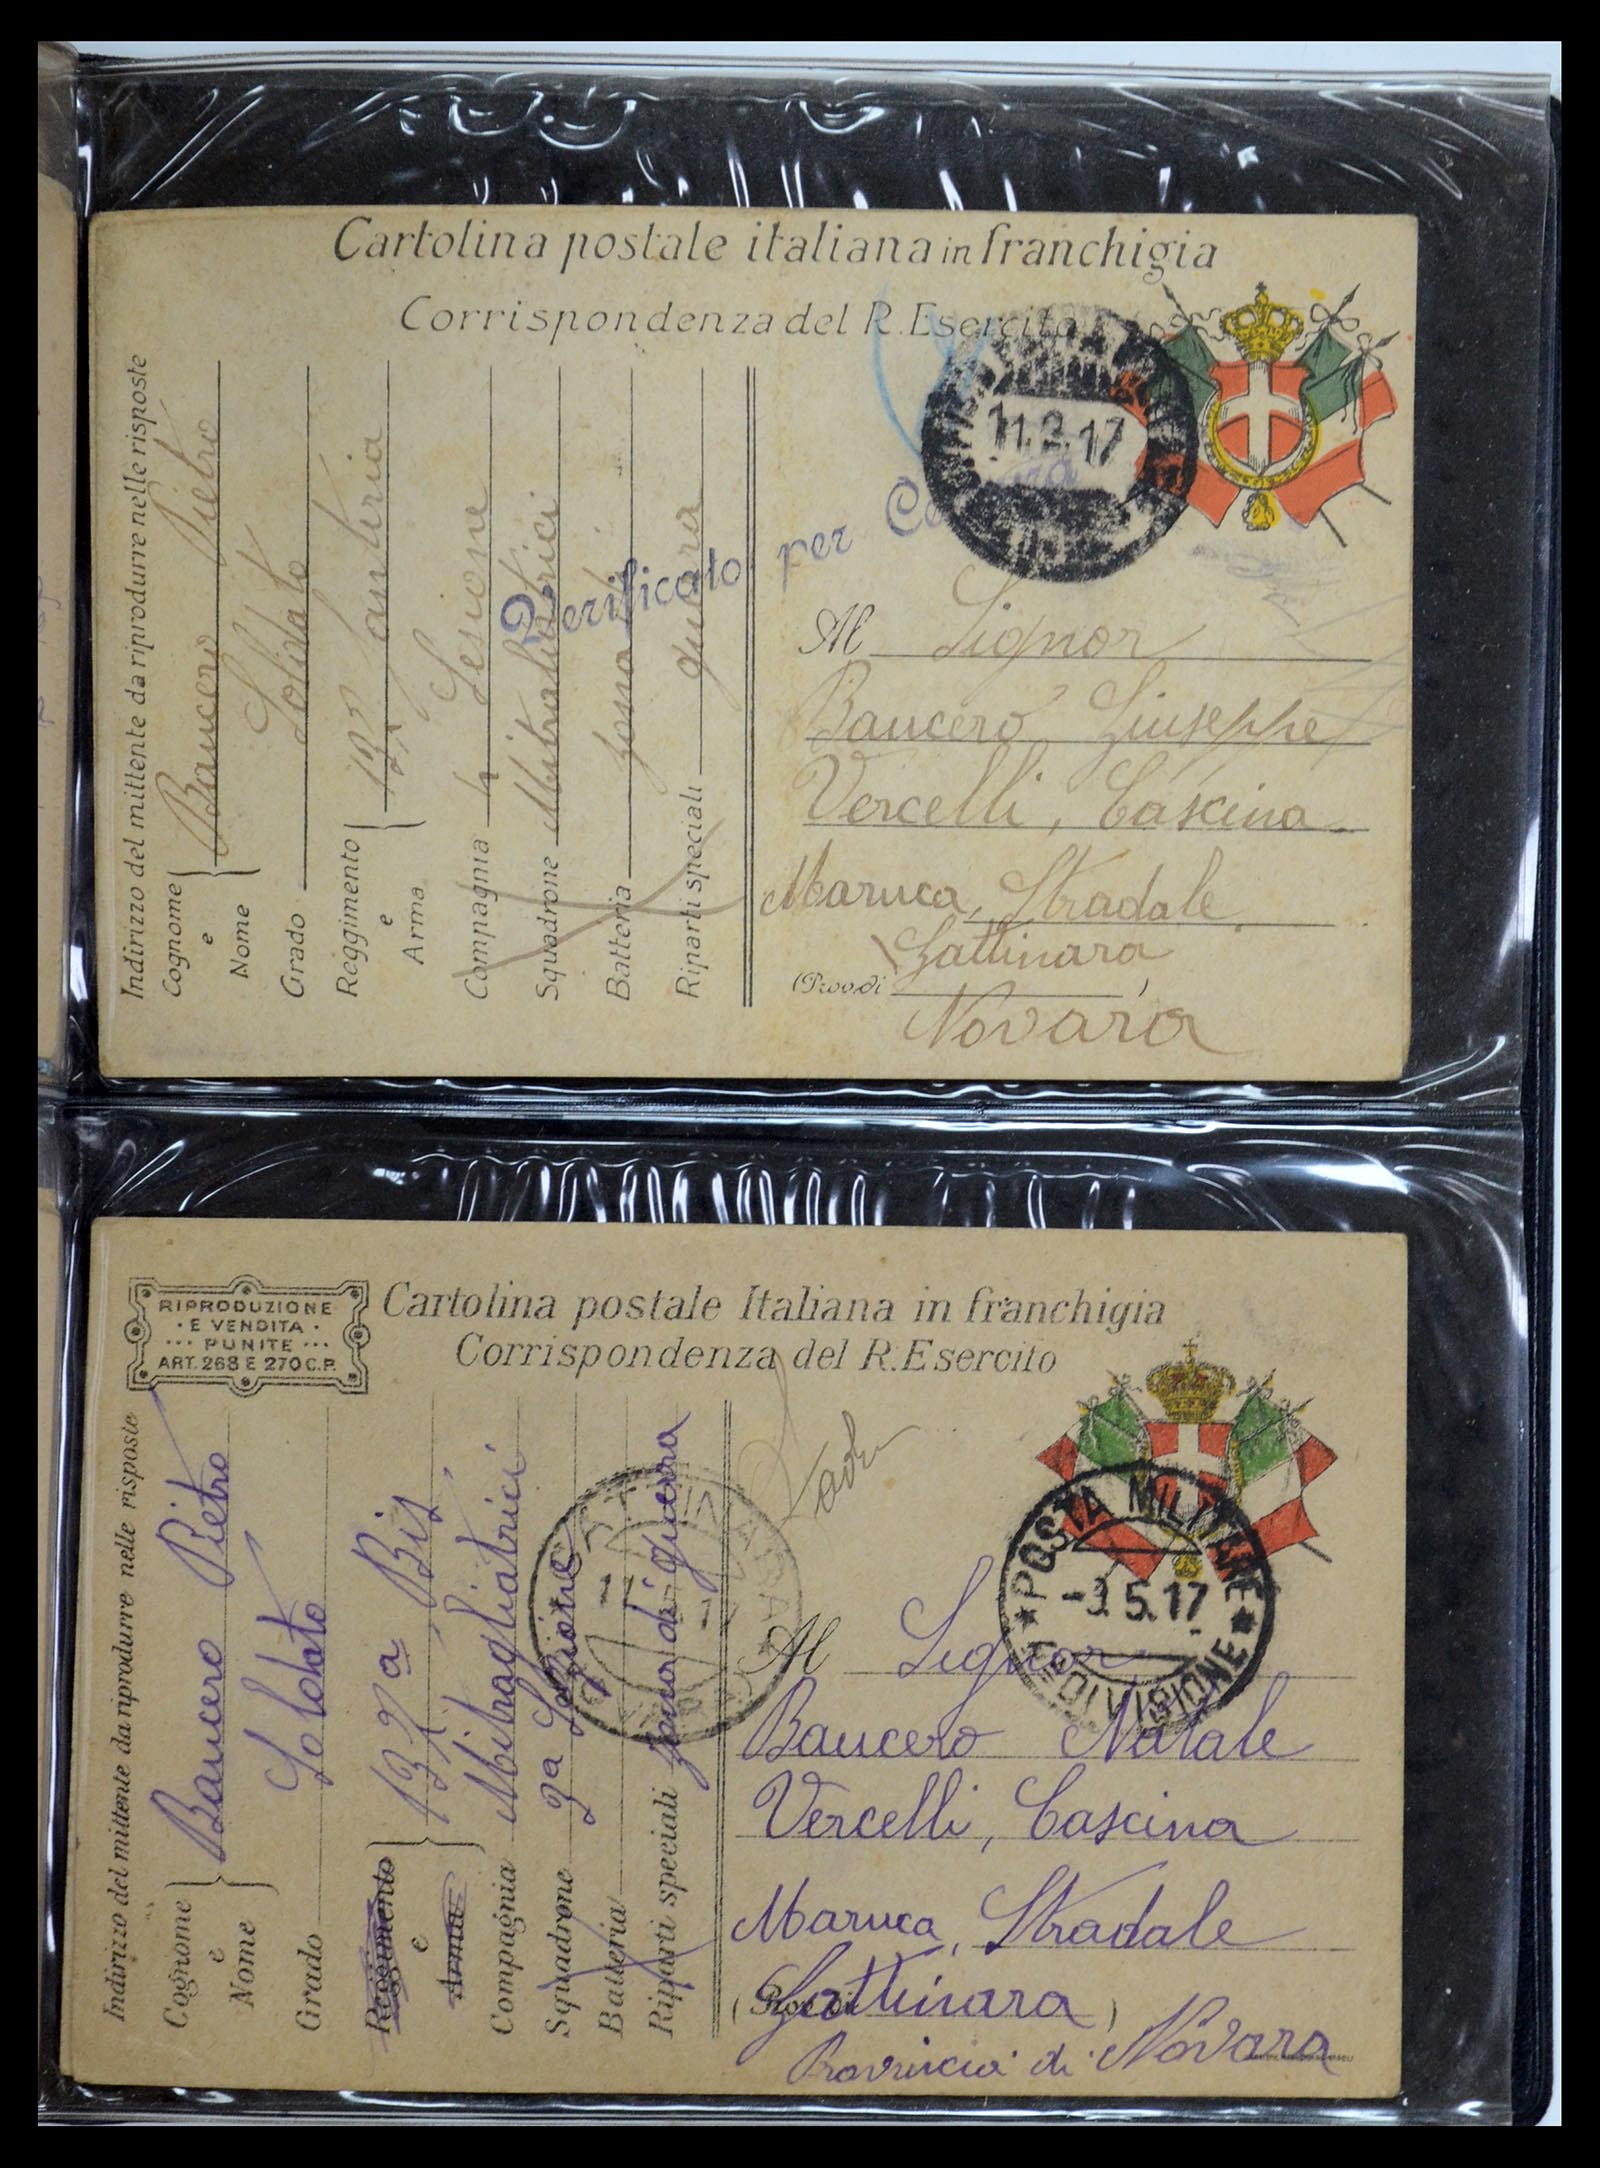 Cartolina postale italiana in franchigia
Corrispondenza del R. Esercito
Indirizzo del mittente da riprodurre nelle risposte
Cognome
e
Nome
Baucero Pietro
Grado
Soldato
Reggimento
e
Arma
Fanteria
Compagnia
Sesione
Squadrone
Mitraliatrici
Batteria
Riparti speciali
guerra
Verificato per Censura
11.2.17
Al Signor
Baucero Giuseppe
Vercelli, Cascina
Maruca, Stradale
Gattinara
(Prov. di )
Novara
RIPRODUZIONE
· E VENDITA ·
··· PUNITE ···
ART. 268 E 270 C.P.
Cartolina postale Italiana in franchigia
Corrispondenza del R. Esercito
Indirizzo del mittente da riprodurre nelle risposte
Cognome
e
Nome
Baucero Pietro
Grado
Soldato
Reggimento
e
Arma
132a Bis
Compagnia
Mitragliatrici
Squadrone
Batteria
Riparti speciali
zona di guerra
POSTA MILITARE
-9.5.17
DIVISIONE
Al Signor
Baucero Natale
Vercelli, Cascina
Maruca, Stradale
(Prov. di Gattinara)
Provincia di Novara